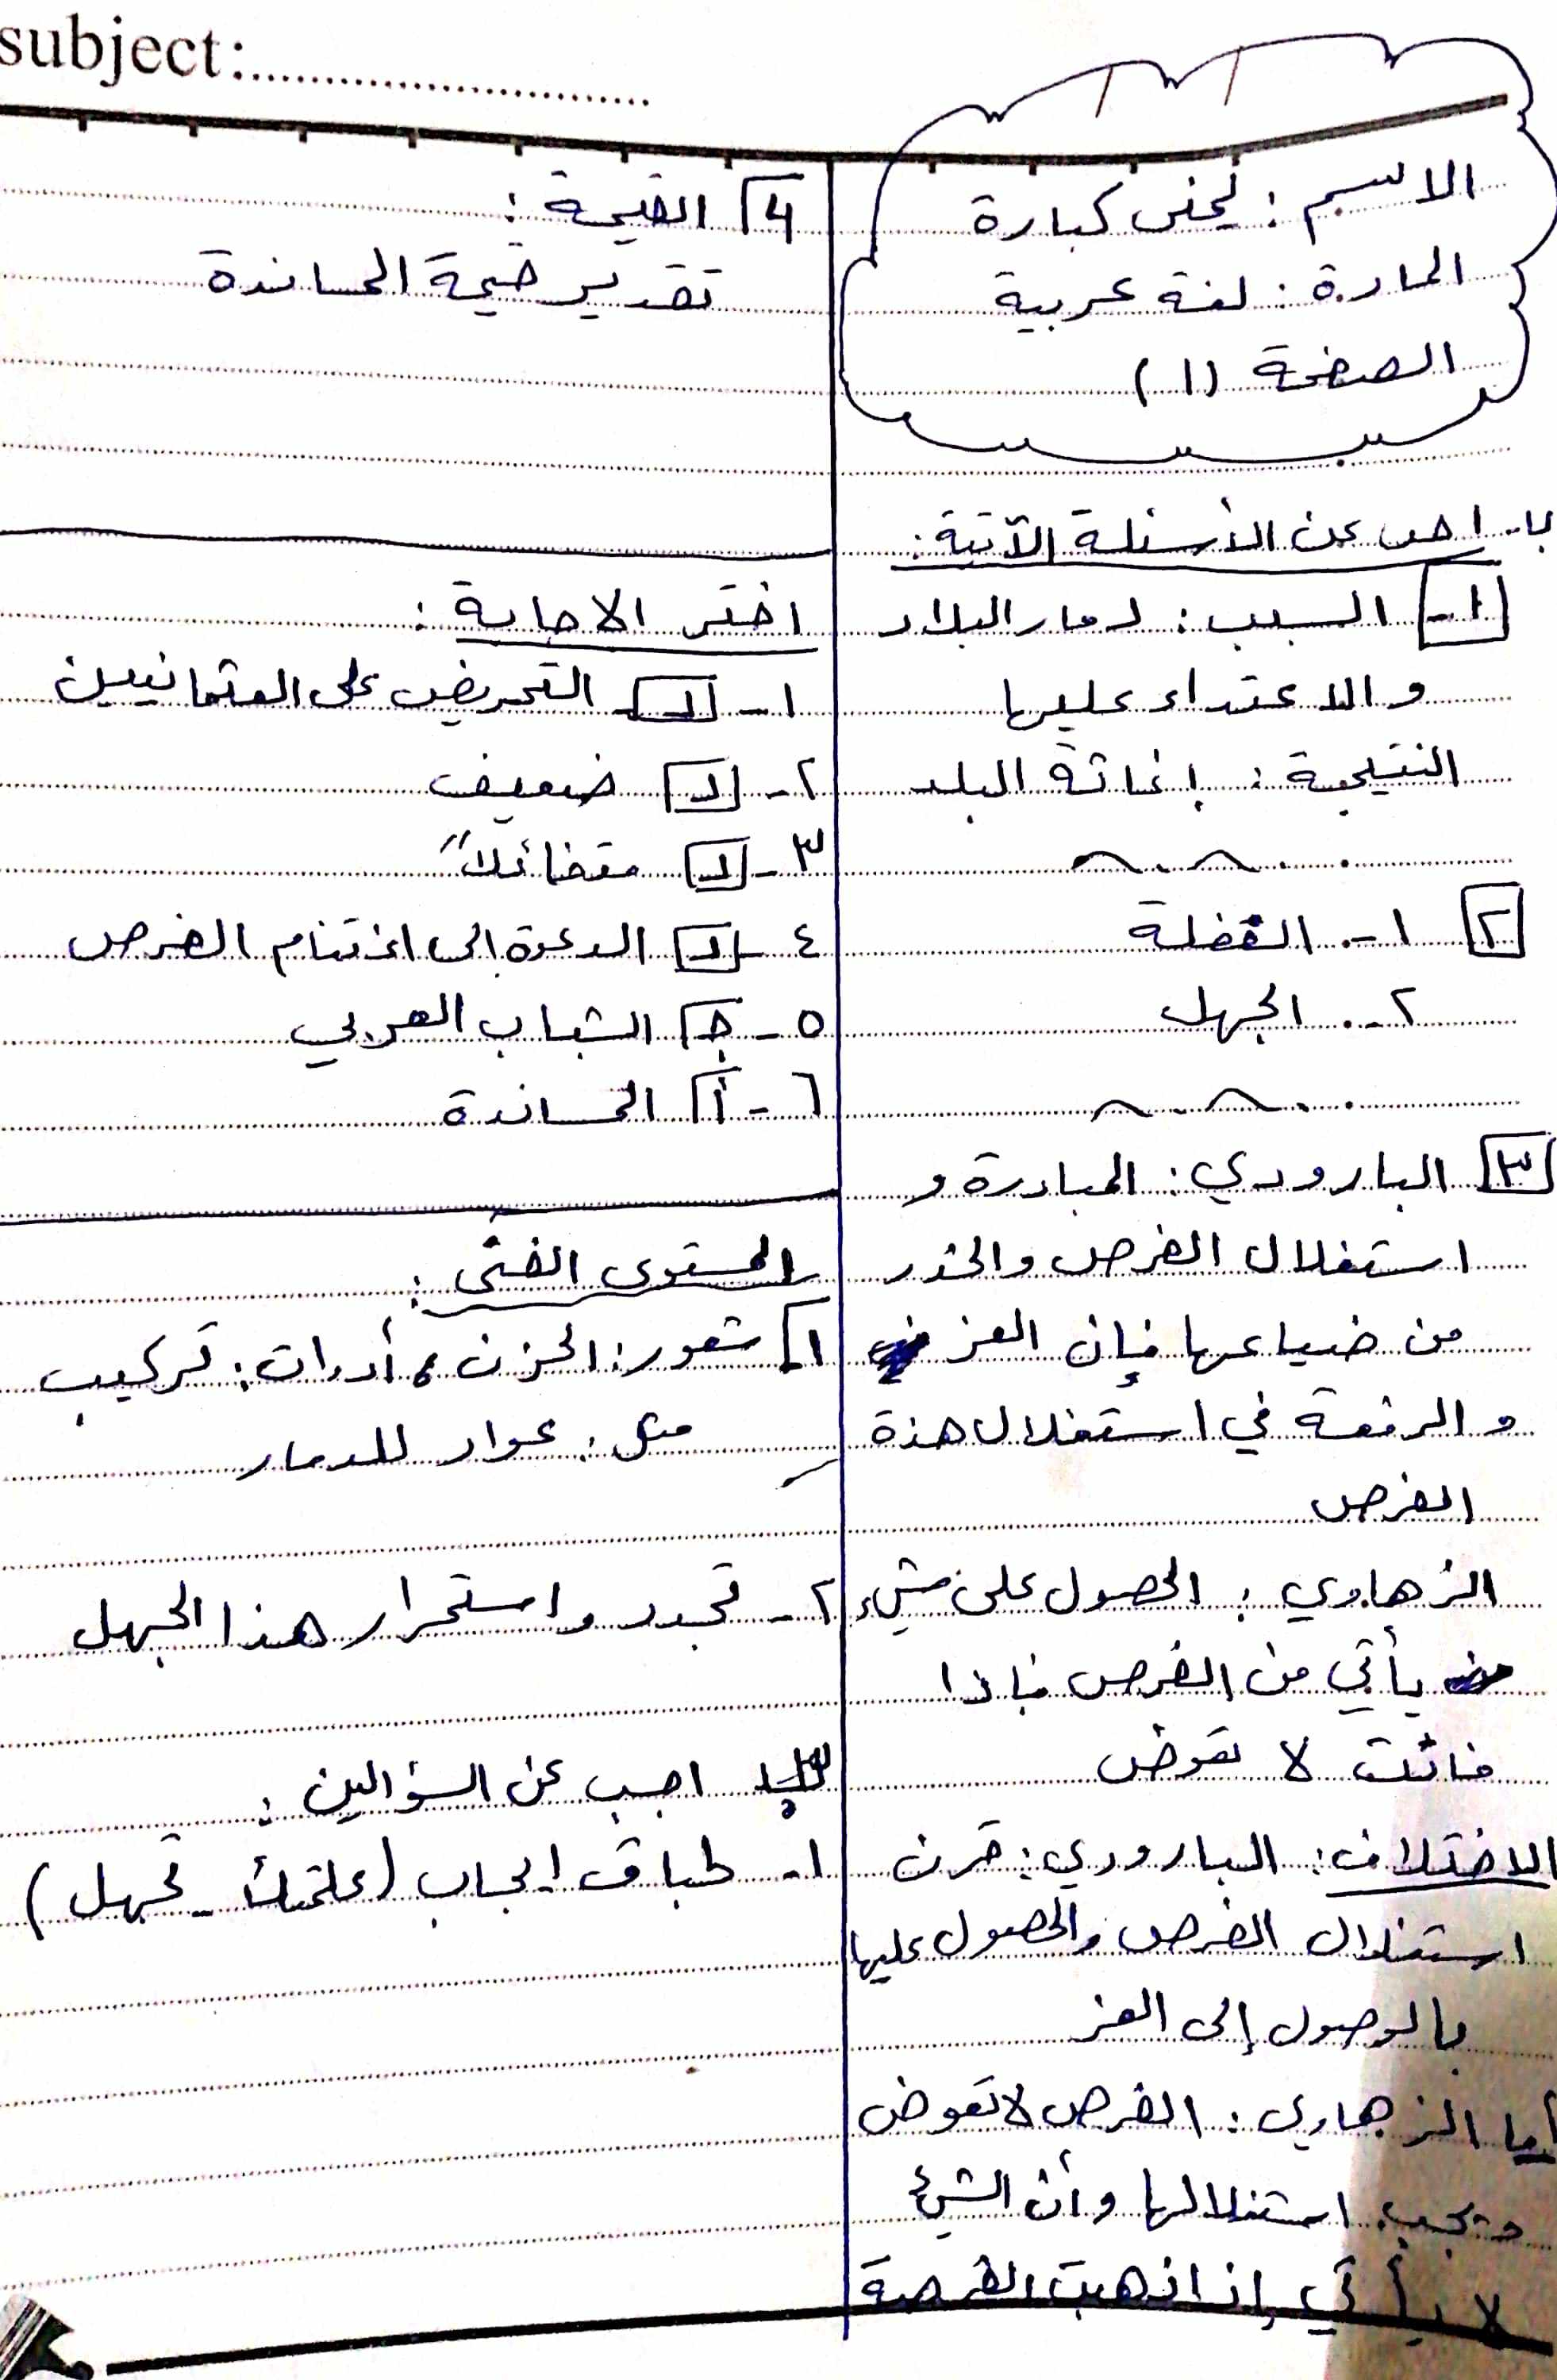 subject:
الاسم: كبارة
المادة: لغة عربية
الصفحة (١)
ب. اجب عن الأسئلة الآتية:
١- السبب: دمار البلاد
والاعتداء عليها
النتيجة: إغاثة البلد
٢ ١- الغفلة
٢- الجهل
٣ البارودي: المبادرة و
استغلال الفرص والحذر
من ضياعها فإن العز
و الرفعة في استغلال هذة
الفرص
الزهاوي: الحصول على شيء
يأتي من الفرص فإذا
فاتت لا تعوض
الاختلاف: البارودي: قرن
استغلال الفرص والحصول عليها
بالوصول إلى العز
أما الزهاوي: الفرص لا تعوض
ويجب استغلالها وأن الشيء
لا يأتي إذا ذهبت الفرصة
٤ القيمة:
تقدير قيمة المساندة
اختر الاجابة:
١- د التحريض على العثمانيين
٢- د ضعيف
٣- د متفائلاً
٤- د الدعوة إلى اغتنام الفرص
٥- ج الشباب العربي
٦- أ المساندة
المستوى الفني:
١ شعور: الحزن، أدوات: تركيب
مثل: عواد للدمار
٢- تجدد واستمرار هذا الجهل
٣ اجب عن السؤالين:
١- طباق ايجاب (علمتك - تجهل)